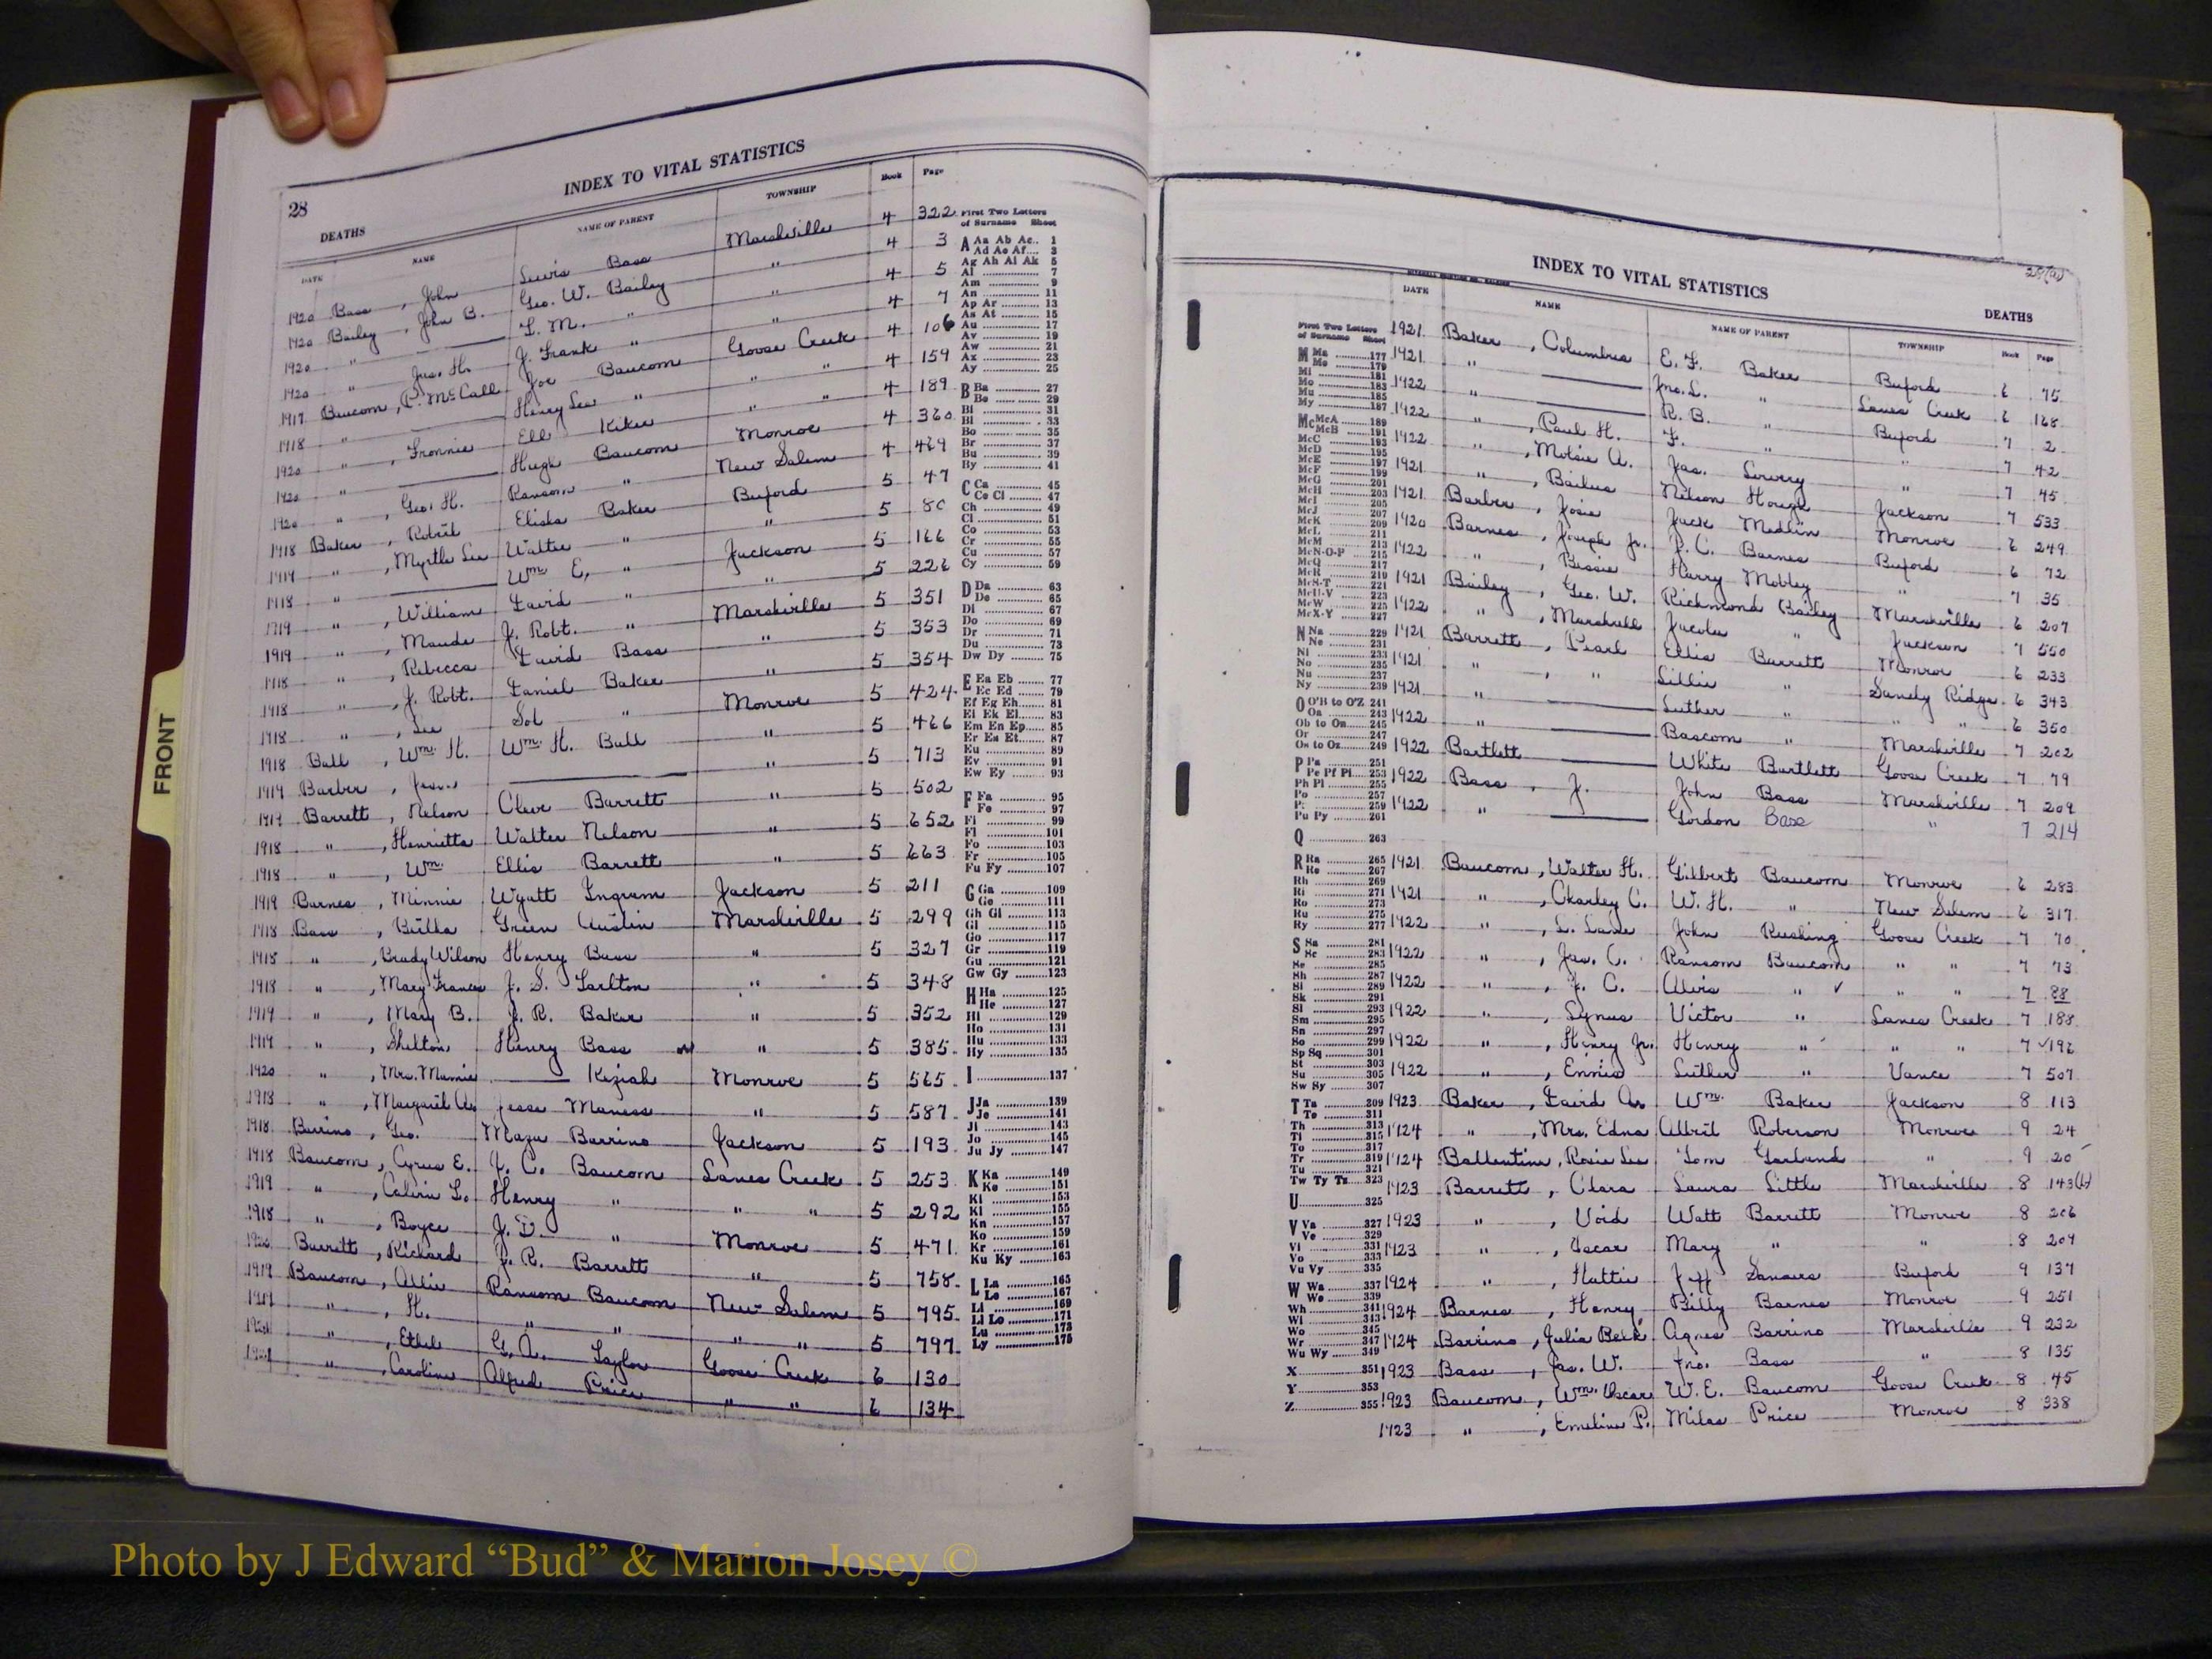 28
INDEX TO VITAL STATISTICS
DEATHS
DATE NAME NAME OF PARENT TOWNSHIP Book Page
1920 Bass, John Lewis Bass Marshville 4 322
1920 Bailey, John B. Geo. W. Bailey " 4 3
1920 " —— L. M. " " 4 5
1920 " Jas. H. J. Frank " " 4 7
1917 Baucom, P. McCall Joe Baucom Goose Creek 4 106
1918 " —— Henry Lee " " " 4 159
1920 ", Fronnie Ell Kiker " " 4 189
1920 " —— Hugh Baucom Monroe 4 360
1920 ", Geo. H. Ransom " New Salem 4 469
1918 Baker, Robert Elisha Baker Buford 5 47
1919 ", Myrtle Lee Walter " " 5 80
1918 " —— Wm. E. " Jackson 5 166
1919 ", William David " " 5 226
1919 ", Maude J. Robt. " Marshville 5 351
1918 ", Rebecca David Bass " 5 353
1918 ", J. Robt. Daniel Baker " 5 354
1918 ", Lee Sol " Monroe 5 424
1918 Ball, Wm. H. Wm. H. Ball " 5 466
1919 Barber, —— " 5 713
1919 Barrett, Nelson Cleve Barrett " 5 502
1918 ", Henrietta Walter Nelson " 5 652
1918 ", Wm. Ellis Barrett " 5 663
1919 Barnes, Minnie Wyatt Ingram Jackson 5 211
1918 Bass, Bertha Green Austin Marshville 5 299
1918 ", Brady Wilson Henry Bass " 5 327
1918 ", Mary Frances J. S. Tarlton " 5 348
1919 ", Mary B. J. R. Baker " 5 352
1919 ", Shelton Henry Bass " 5 385
1920 ", Mrs. Mamie —— Keziah Monroe 5 565
1918 ", Margaret A. Jesse Maness " 5 587
1918 Barrino, Geo. Mazu Barrino Jackson 5 193
1918 Baucom, Cyrus E. J. C. Baucom Lanes Creek 5 253
1919 ", Calvin L. Henry " " " 5 292
1918 ", Boyce J. D. " Monroe 5 471
1920 Barrett, Richard J. R. Barrett " 5 758
1919 Baucom, Allie Ransom Baucom New Salem 5 795
1919 ", H. " " " " 5 797
", Ethel G. A. Taylor Goose Creek 6 130
", Caroline Alfred Price " " 6 134
First Two Letters
of Surname Sheet
A Aa Ab Ac.. 1
Ad Ae Af.... 3
Ag Ah Ai Ak 5
Al 7
Am 9
An 11
Ap Ar 13
As At 15
Au 17
Av 19
Aw 21
Ax 23
Ay 25
B Ba 27
Be 29
Bi 31
Bl 33
Bo 35
Br 37
Bu 39
By 41
C Ca 45
Ce Ci 47
Ch 49
Cl 51
Co 53
Cr 55
Cu 57
Cy 59
D Da 63
De 65
Di 67
Do 69
Dr 71
Du 73
Dw Dy 75
E Ea Eb 77
Ec Ed 79
Ef Eg Eh 81
Ei Ek El 83
Em En Ep 85
Er Es Et 87
Eu 89
Ev 91
Ew Ey 93
F Fa 95
Fe 97
Fi 99
Fl 101
Fo 103
Fr 105
Fu Fy 107
G Ga 109
Ge 111
Gh Gi 113
Gl 115
Go 117
Gr 119
Gu 121
Gw Gy 123
H Ha 125
He 127
Hi 129
Ho 131
Hu 133
Hy 135
I 137
J Ja 139
Je 141
Ji 143
Jo 145
Ju Jy 147
K Ka 149
Ke 151
Ki 153
Kl 155
Kn 157
Ko 159
Kr 161
Ku Ky 163
L La 165
Le 167
Li 169
Ll Lo 171
Lu 173
Ly 175
28(a)
INDEX TO VITAL STATISTICS
DEATHS
DATE NAME NAME OF PARENT TOWNSHIP Book Page
1921 Baker, Columbus E. F. Baker Buford 6 75
1921 " —— Jno. L. " Lanes Creek 6 168
1922 " —— R. B. " Buford 7 2
1922 ", Paul H. F. " " 7 42
1922 ", Motsie A. Jas. Lowery " 7 45
1921 ", Bailus Nelson Hough Jackson 7 533
1921 Barber, Josie Jack Medlin Monroe 6 249
1920 Barnes, Joseph Jr. P. C. Barnes Buford 6 72
1922 ", Bessie Harry Mobley " 7 35
1921 Bailey, Geo. W. Richmond Bailey Marshville 6 207
1922 ", Marshall Jacobs " Jackson 7 550
1921 Barrett, Pearl Ellis Barrett Monroe 6 233
1921 ", " Lillie " Sandy Ridge 6 343
1921 " —— Luther " " " 6 350
1922 " —— Bascom " Marshville 7 202
1922 Bartlett —— White Bartlett Goose Creek 7 79
1922 Bass, J. John Bass Marshville 7 209
1922 " —— Gordon Bass " 7 214
1921 Baucom, Walter H. Gilbert Baucom Monroe 6 283
1921 ", Charley C. W. H. " New Salem 6 317
1922 ", L. Lane John Rushing Goose Creek 7 70
1922 ", Jas. C. Ransom Baucom " " 7 73
1922 ", J. C. Alvis " ✓ " " 7 88
1922 ", Lynus Victor " Lanes Creek 7 188
1922 ", Henry Jr. Henry " " " 7 ✓196
1922 ", Ennis Luther " Vance 7 507
1923 Baker, David A. Wm. Baker Jackson 8 113
1924 ", Mrs. Edna Albert Roberson Monroe 9 24
1924 Ballentine, Rosie Lee Tom Garland " 9 20
1923 Barrett, Clara Laura Little Marshville 8 143(b)
1923 ", Void Watt Barrett Monroe 8 206
1923 ", Oscar Mary " " 8 209
1924 ", Hattie Jeff Sanders Buford 9 137
1924 Barnes, Henry Billy Barnes Monroe 9 251
1924 Barrino, Julia Belk Agnes Barrino Marshville 9 232
1923 Bass, Jas. W. Jno. Bass " 8 135
1923 Baucom, Wm. Oscar W. E. Baucom Goose Creek 8 45
1923 ", Emeline P. Milas Price Monroe 8 338
First Two Letters
of Surname Sheet
M Ma 177
Me 179
Mi 181
Mo 183
Mu 185
My 187
Mc McA 189
McB 191
McC 193
McD 195
McE 197
McF 199
McG 201
McH 203
McI 205
McJ 207
McK 209
McL 211
McM 213
McN-O-P 215
McQ 217
McR 219
McS-T 221
McU-V 223
McW 225
McX-Y 227
N Na 229
Ne 231
Ni 233
No 235
Nu 237
Ny 239
O O'B to O'Z 241
Oa 243
Ob to On 245
Or 247
Os to Oz 249
P Pa 251
Pe Pf Pi 253
Ph Pl 255
Po 257
Pr 259
Pu Py 261
Q 263
R Ra 265
Re 267
Rh 269
Ri 271
Ro 273
Ru 275
Ry 277
S Sa 281
Sc 283
Se 285
Sh 287
Si 289
Sk 291
Sl 293
Sm 295
Sn 297
So 299
Sp Sq 301
St 303
Su 305
Sw Sy 307
T Ta 309
Te 311
Th 313
Ti 315
To 317
Tr 319
Tu 321
Tw Ty Tz 323
U 325
V Va 327
Ve 329
Vi 331
Vo 333
Vu Vy 335
W Wa 337
We 339
Wh 341
Wi 343
Wo 345
Wr 347
Wu Wy 349
X 351
Y 353
Z 355
FRONT
Photo by J Edward “Bud” & Marion Josey ©